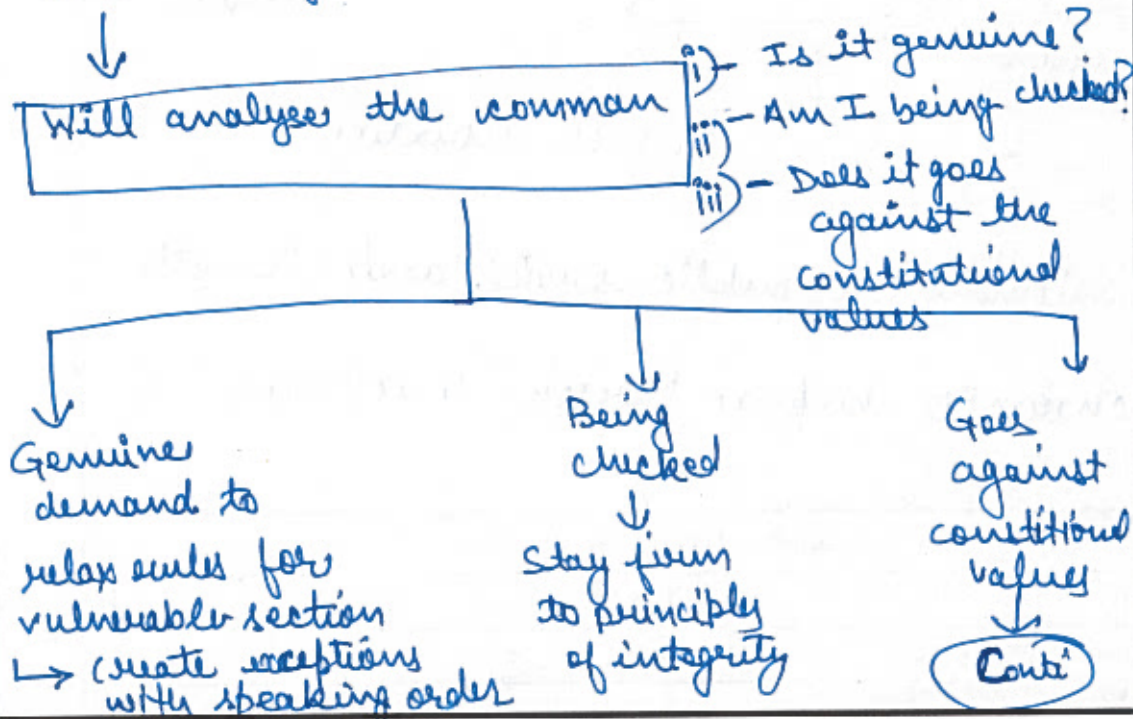 Will analyse the comman
i) - Is it genuine?
ii) - Am I being checked?
iii) - Does it goes
against the
constitutional
values
Genuine
demand to
relax rules for
vulnerable section
↳ create exceptions
with speaking order
Being
checked
↓
Stay firm
to principles
of integrity
Goes
against
constitional
values
↓
Conti